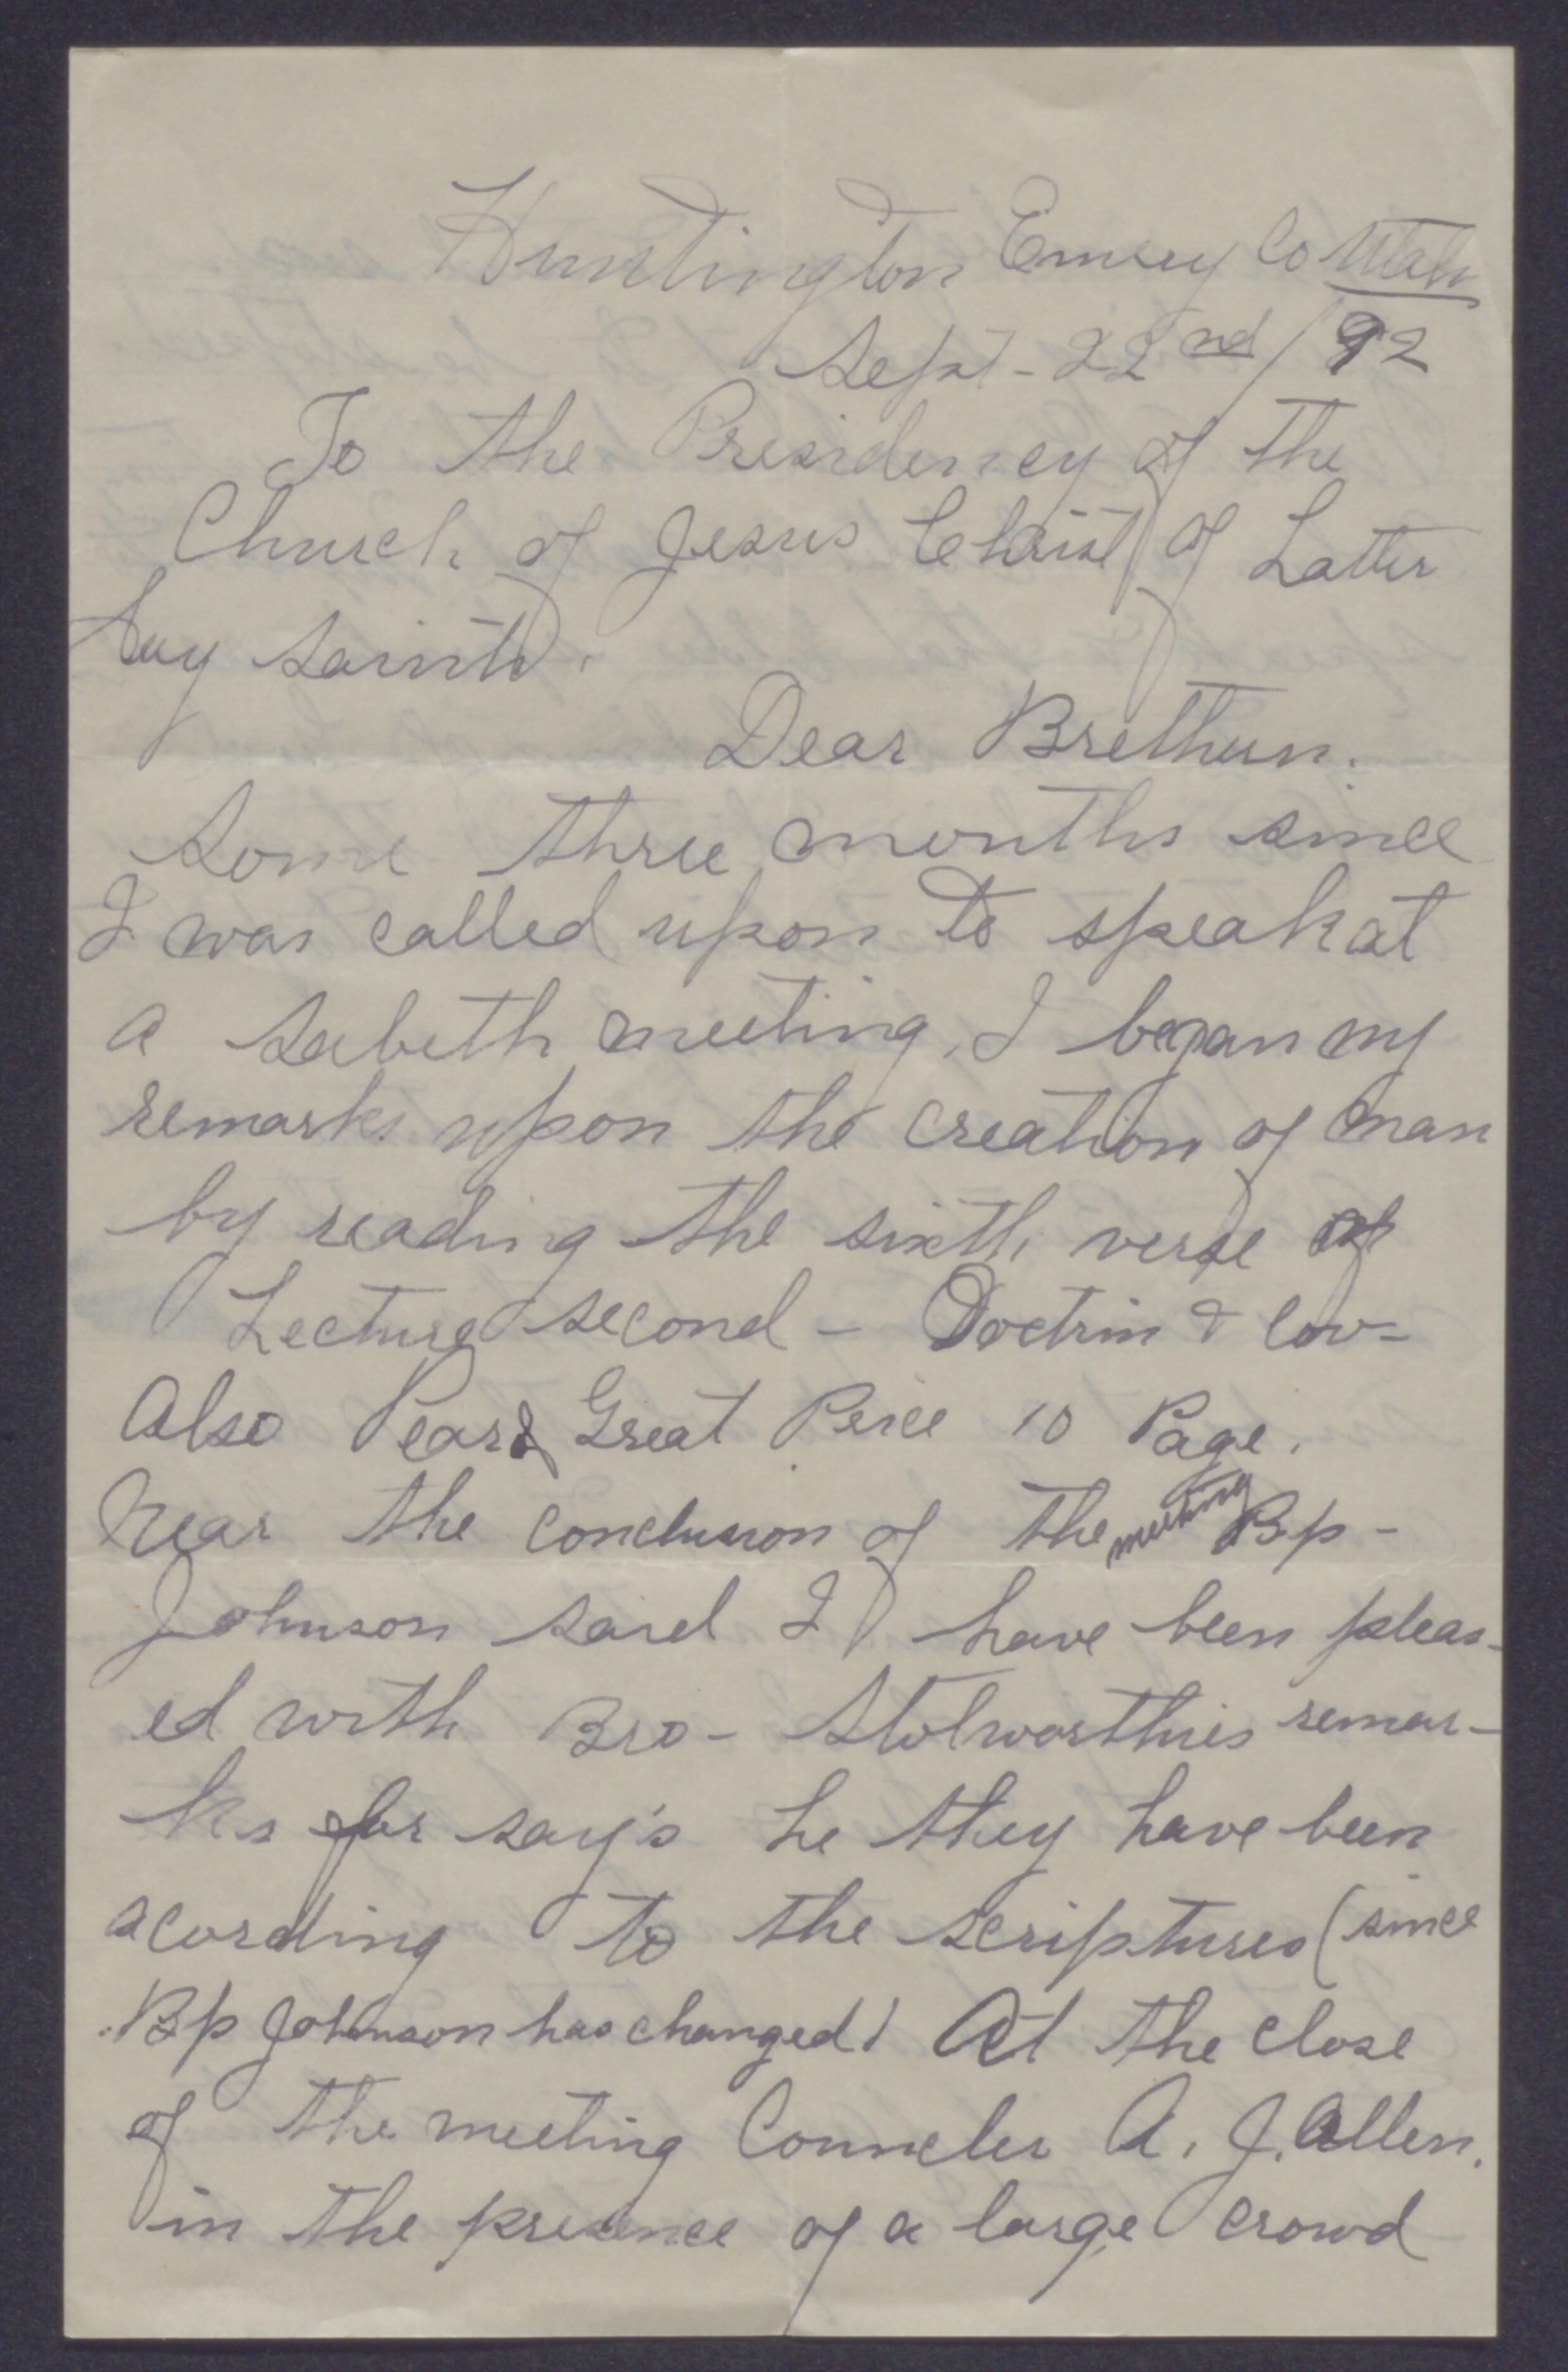 Huntington Emery Co Utah
Sept - 22nd / 92
To the Presidency of the
Church of Jesus Christ of Latter
day saints.
Dear Brethern.
Some three months since
I was called upon to speak at
a Sabeth meeting, I began my
remarks upon the creation of man
by reading the sixth verse of
Lecture second - Doctrin & Cov-
Also Pearl Great Perce 10 Page.
Near the conclusion of the meeting Bp-
Johnson said I have been pleas-
ed with Bro- Stolworthies remar-
ks for say's he they have been
acording to the scriptures (since
Bp Johnson has changed) At the close
of the meeting Conncler A. J. Allen.
in the presence of a large crowd